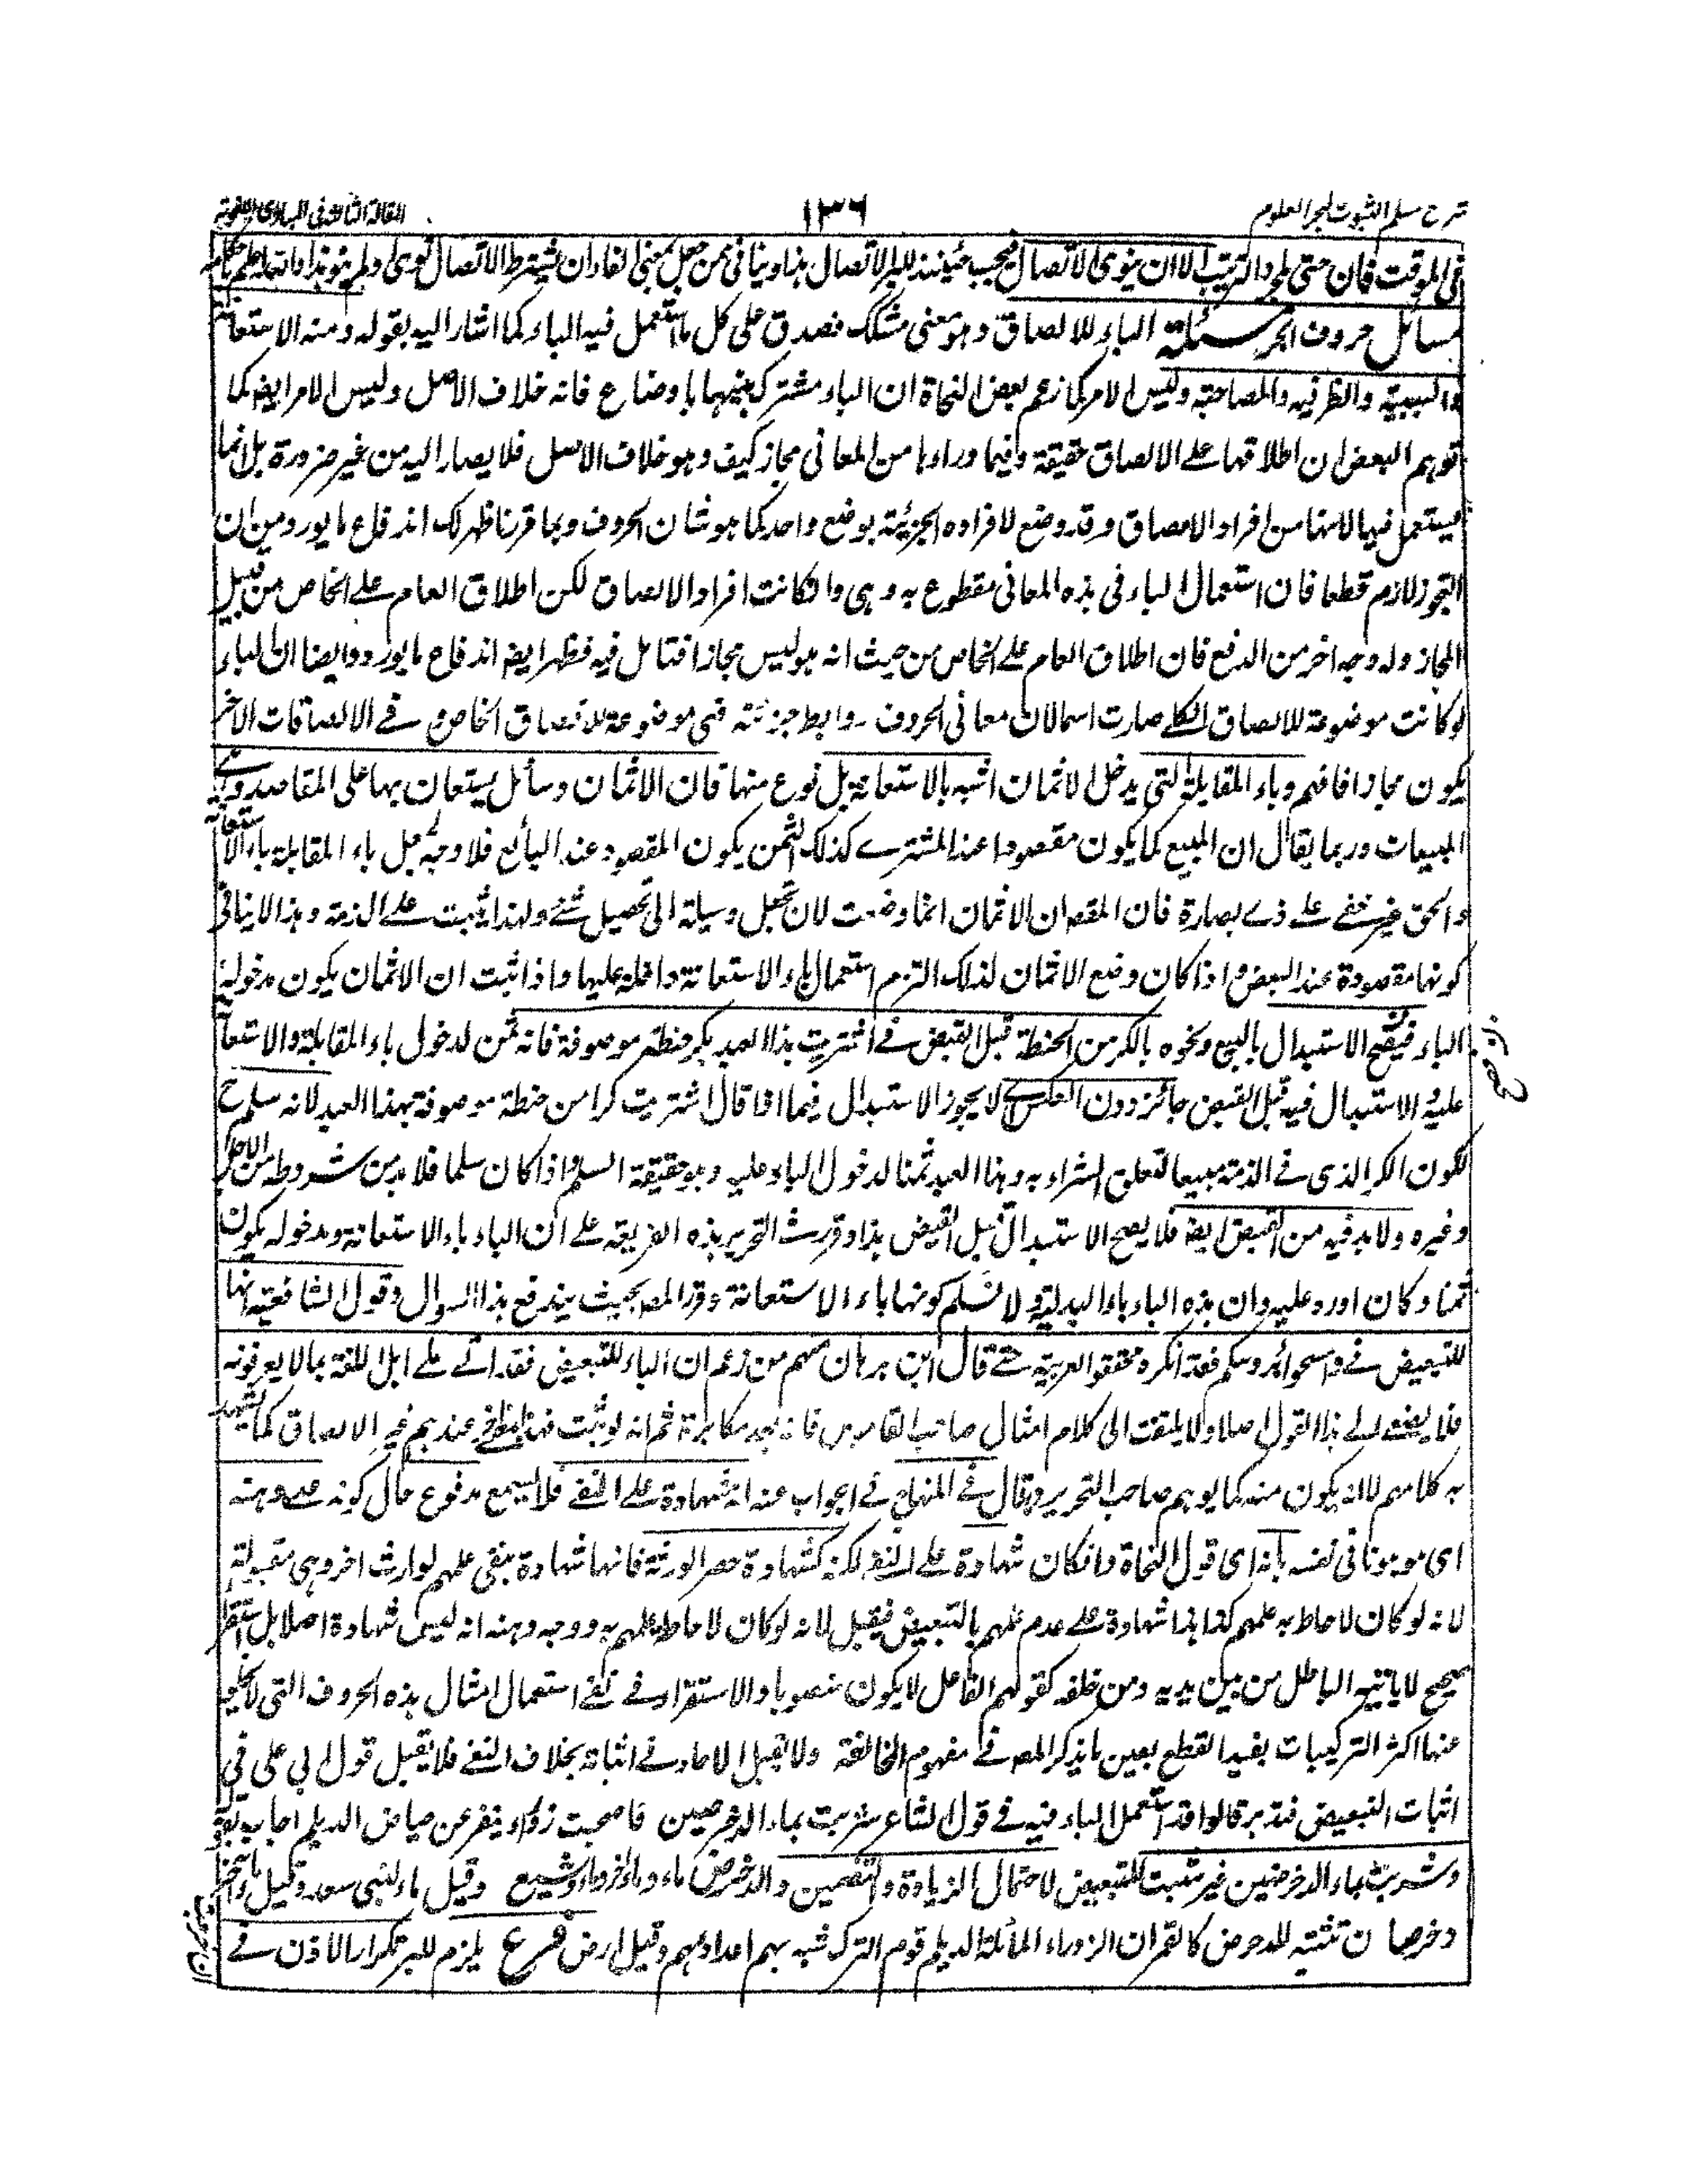 شرح مسلم الثبوت لبحر العلوم
١٣٦
المقالة الثالثة فى المبادى اللغوية
فى الموقت فان حتى لمجرد الترتيب الا ان ينوى الاتصال فيجب حينئذ للبر الاتصال هذا وينافى من جعل بمعنى الفاء ان يشترط الاتصال نوى او لم ينو هذا والله اعلم باحكامه
مسائل حروف الجر مسئلة الباء للالصاق وهو معنى مشكك فصدق على كل ما استعمل فيه الباء كما اشار اليه بقوله ومنه الاستعانة
والسببية والظرفية والمصاحبة وليس الامر كما زعم بعض النحاة ان الباء مشترك بينها باوضاع فانه خلاف الاصل وليس الامر ايضا كما
توهم البعض ان اطلاقها على الالصاق حقيقة وفيما وراءها من المعانى مجاز كيف وهو خلاف الاصل فلا يصار اليه من غير ضرورة بل انما
يستعمل فيها لانها من افراد الالصاق وقد وضع لافراده الجزئية بوضع واحد كما هو شان الحروف وبما قررنا ظهر لك اندفاع ما يورد من ان
التجوز لازم قطعا فان استعمال الباء فى هذه المعانى مقطوع به وهى وان كانت افراد الالصاق لكن اطلاق العام على الخاص من قبيل
المجاز وله وجه اخر من الدفع فان اطلاق العام على الخاص من حيث انه هو ليس مجازا فتامل فيه فظهر ايضا اندفاع ما يورد وايضا ان الباء
لو كانت موضوعة للالصاق الكلى صارت اسما لان معانى الحروف روابط جزئية فهى موضوعة للالصاق الخاص وفى الالصاقات الاخر
يكون مجازا فافهم وباء المقابلة التى يدخل الاثمان اشبه بالاستعانة بل نوع منها فان الاثمان وسائل يستعان بها على المقاصد وهى
المبيعات وربما يقال ان المبيع كما يكون مقصودا عند المشترى كذلك الثمن يكون المقصود عند البائع فلا وجه لجعل باء المقابلة باء الاستعانة
والحق غير خفى على ذى بصارة فان المقصان الاثمان انما وضعت لان تجعل وسيلة الى تحصيل شئ ولهذا يثبت على الذمة وهذا لا ينافى
كونها مقصودة عند البعض واذا كان وضع الاثمان لذلك التزم استعمال باء الاستعانة داخلة عليها واذا ثبت ان الاثمان يكون مدخولة
الباء فيصح الاستبدال بالبيع ونحوه بالكر من الحنطة قبل القبض فى اشتريت هذا العبد بكر حنطة موصوفة فانه ثمن لدخول باء المقابلة والاستعانة
عليه والاستبدال فيه قبل القبض جائز دون العكس لا يجوز الاستبدال فيما اذا قال اشتريت كرا من حنطة موصوفة بهذا العبد لانه سلم ح
لكون الكر الذى فى الذمة مبيعا لتعلق الشراء به وهذا العبد ثمنا لدخول الباء عليه وهو حقيقة السلم واذا كان سلما فلا بد من شروطه من الاجل
وغيره ولا بد فيه من القبض ايضا فلا يصح الاستبدال قبل القبض هذا وقررت التحرير بهذه الطريقة على ان الباء باء الاستعانة ومدخوله يكون
ثمنا وكان اورد عليه وان هذه الباء باء البدلية ولا نسلم كونها باء الاستعانة وقرر المصـ بحيث يندفع هذا السوال وقول الشافعية انها
للتبعيض فى وامسحوا برؤسكم فقد انكره محققو العربية حتى قال ابن برهان منهم من زعم ان الباء للتبعيض فقد اتى على اهل اللغة بما لا يعرفونه
فلا يصغى الى هذا القول اصلا ولا يلتفت الى كلام امثال صاحب القاموس فانه بعد مكابرة ثم انه لو ثبت عندهم غير الالصاق كما يشهد
به كلامهم لا انه يكون منه كما يوهم صاحب التحرير وقال فى المنهاج فى الجواب عنه انه شهادة على النفى فلا يسمع مدفوع حال كونه على وهنه
اى موهونا فى نفسه بانه اى قول النحاة وان كان شهادة على النفى لكنه كشهادة حصر الورثة فانها شهادة بنفى علمهم لوارث اخر وهى مقبولة
لانه لو كان لاحاط به علمهم كذا هذا شهادة على عدم علمهم بالتبعيض فيقبل لانه لو كان لاحاط علمهم به ووجه وهنه انه ليس شهادة اصلا بل استقراء
صحيح لا ياتيه الباطل من بين يديه ومن خلفه كقولهم الفاعل لا يكون منصوبا والاستقراء فى نفى استعمال امثال هذه الحروف التى لا يخلو
عنها اكثر التركيبات يفيد القطع بعين ما يذكر المصـ فى مفهوم المخالفة ولا يقبل الاحاد فى اثباته بخلاف النفى فلا يقبل قول ابى على فى
اثبات التبعيض فتدبر قالوا قد استعمل الباء فيه فى قول الشاعر شربت بماء الدحرضين فاصبحت زوراء ينفر عن حياض الديلم اجاب بقوله
وشربت بماء الدحرضين غير مثبت للتبعيض لاحتمال الزيادة والتضمين والدحرض ماء وماء اخر وشيع وقيل ماء لبنى سعد وقيل
دحرضان تثنية للدحرض كالقمران الزوراء المائلة الديلم قوم الترك شبه بهم اعداءهم وقيل ارض فرع يلزم للبر تكرار الاذن فى